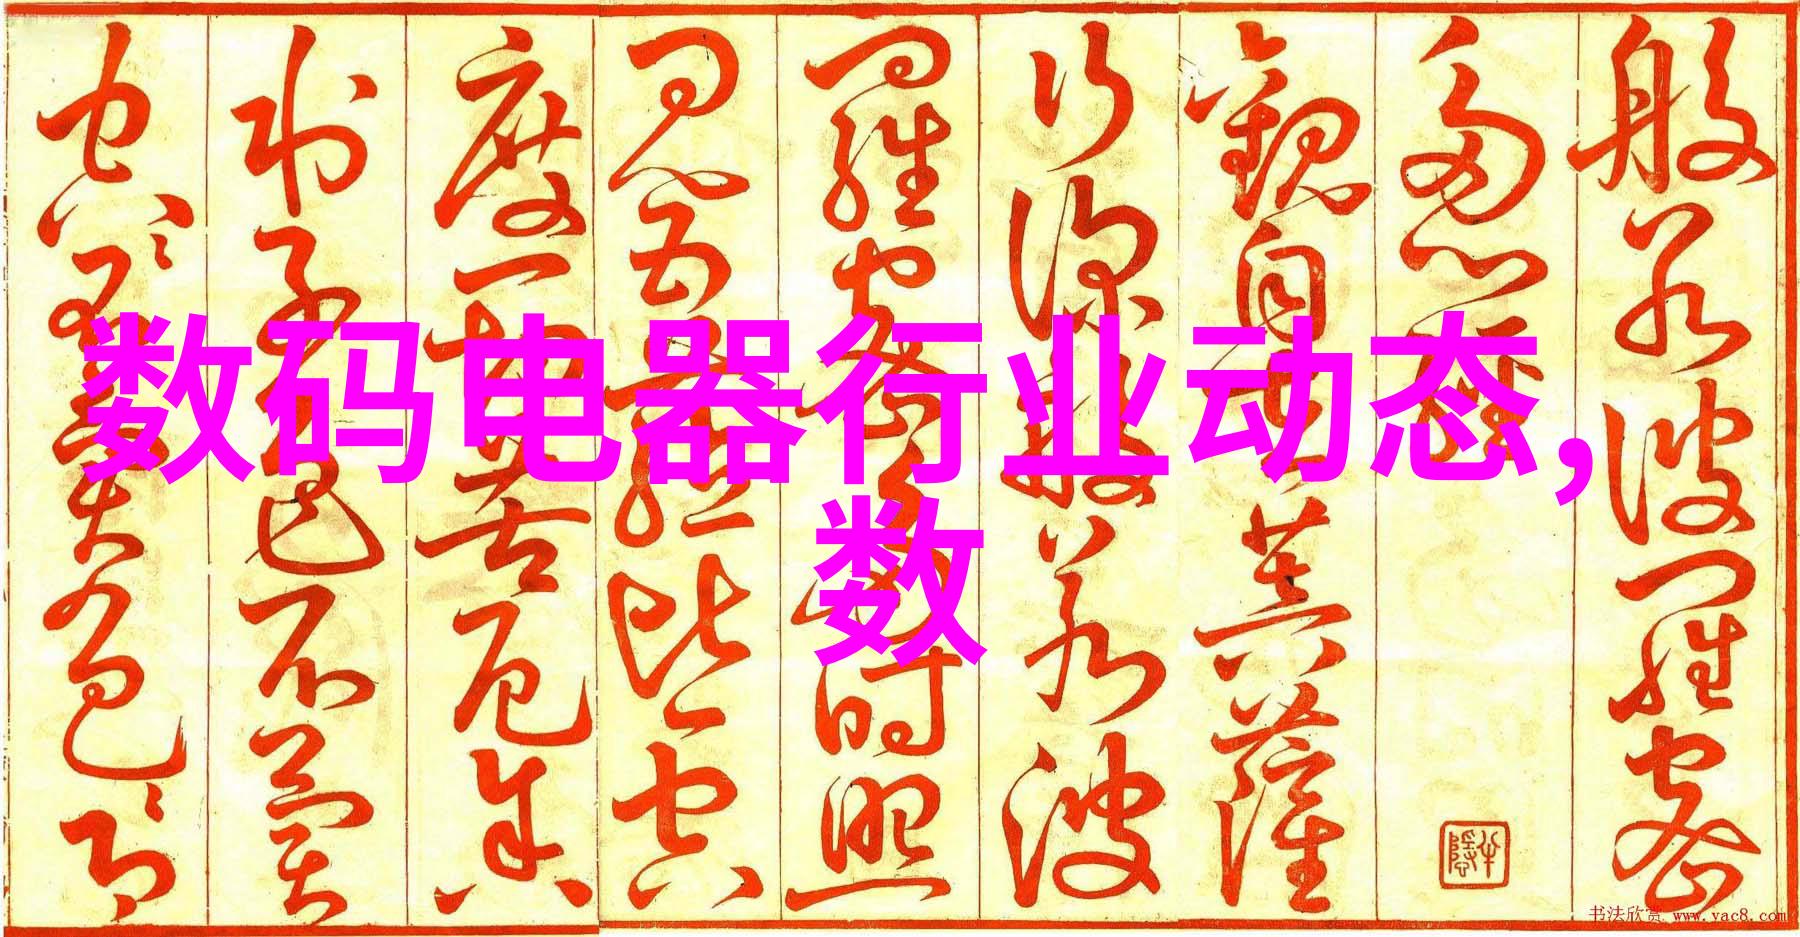 般若波羅蜜
多心經
觀自在菩薩
行深般若波
羅蜜多時照
見五蘊皆空
度一切苦厄舍
利子色不異
空〻不異色〻即
数码电器行业动态,
数
书法欣赏 www.yac8.com